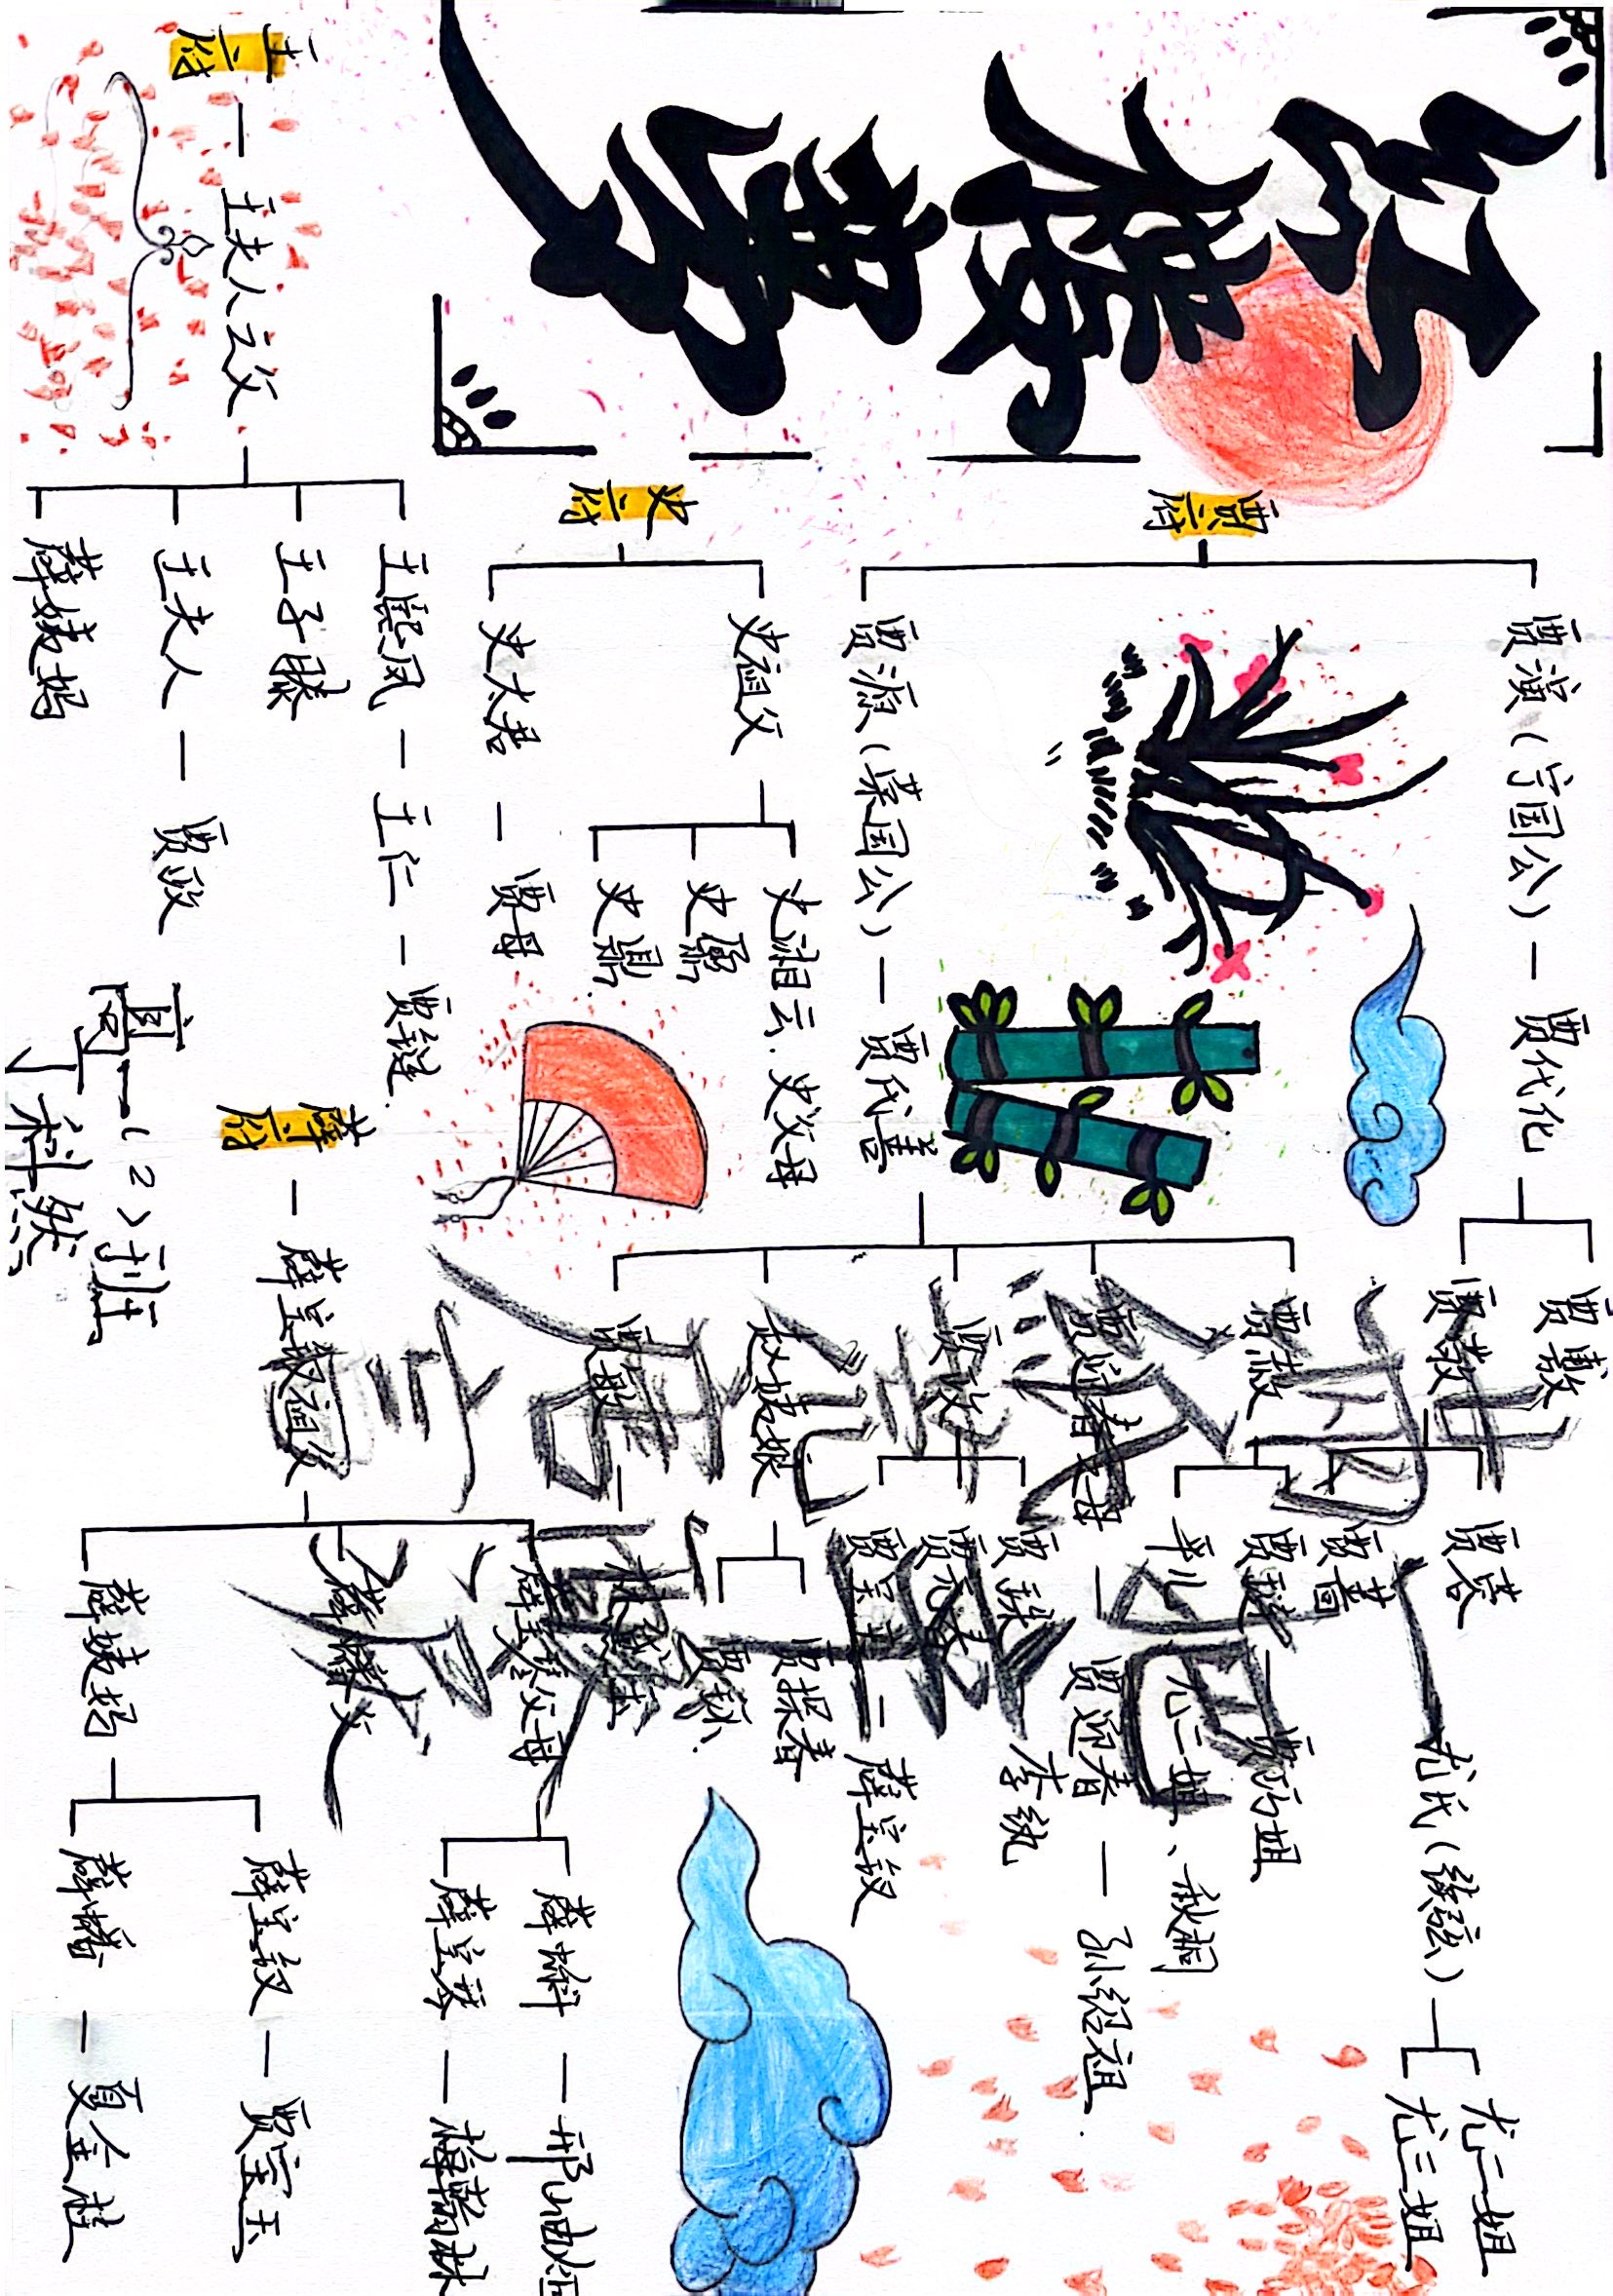 红楼梦
贾府
贾演（宁国公）— 贾代化
贾敷
贾敬
贾蓉
贾蔷
尤氏（续弦）
尤二姐
尤三姐
贾源（荣国公）— 贾代善
贾赦
贾琏 — 贾巧姐
平儿、尤二姐、秋桐
贾迎春之母 — 贾迎春 — 孙绍祖
贾政
贾珠 — 李纨
贾元春
贾宝玉 — 薛宝钗
赵姨娘
贾探春
贾环
贾敏 — 林黛玉
满纸荒唐言
一把辛酸泪
史府
史祖父
史湘云.史父母
史鼐
史鼎
史太君 — 贾母
王府 — 王夫人之父
王熙凤 — 王仁 — 贾琏
王子腾
王夫人 — 贾政
薛姨妈
薛府 — 薛宝钗祖父
薛宝琴父母
薛蝌 — 邢岫烟
薛宝琴 — 梅翰林
薛蟠父
薛姨妈
薛宝钗 — 贾宝玉
薛蟠 — 夏金桂
高一（2）班
丁科然